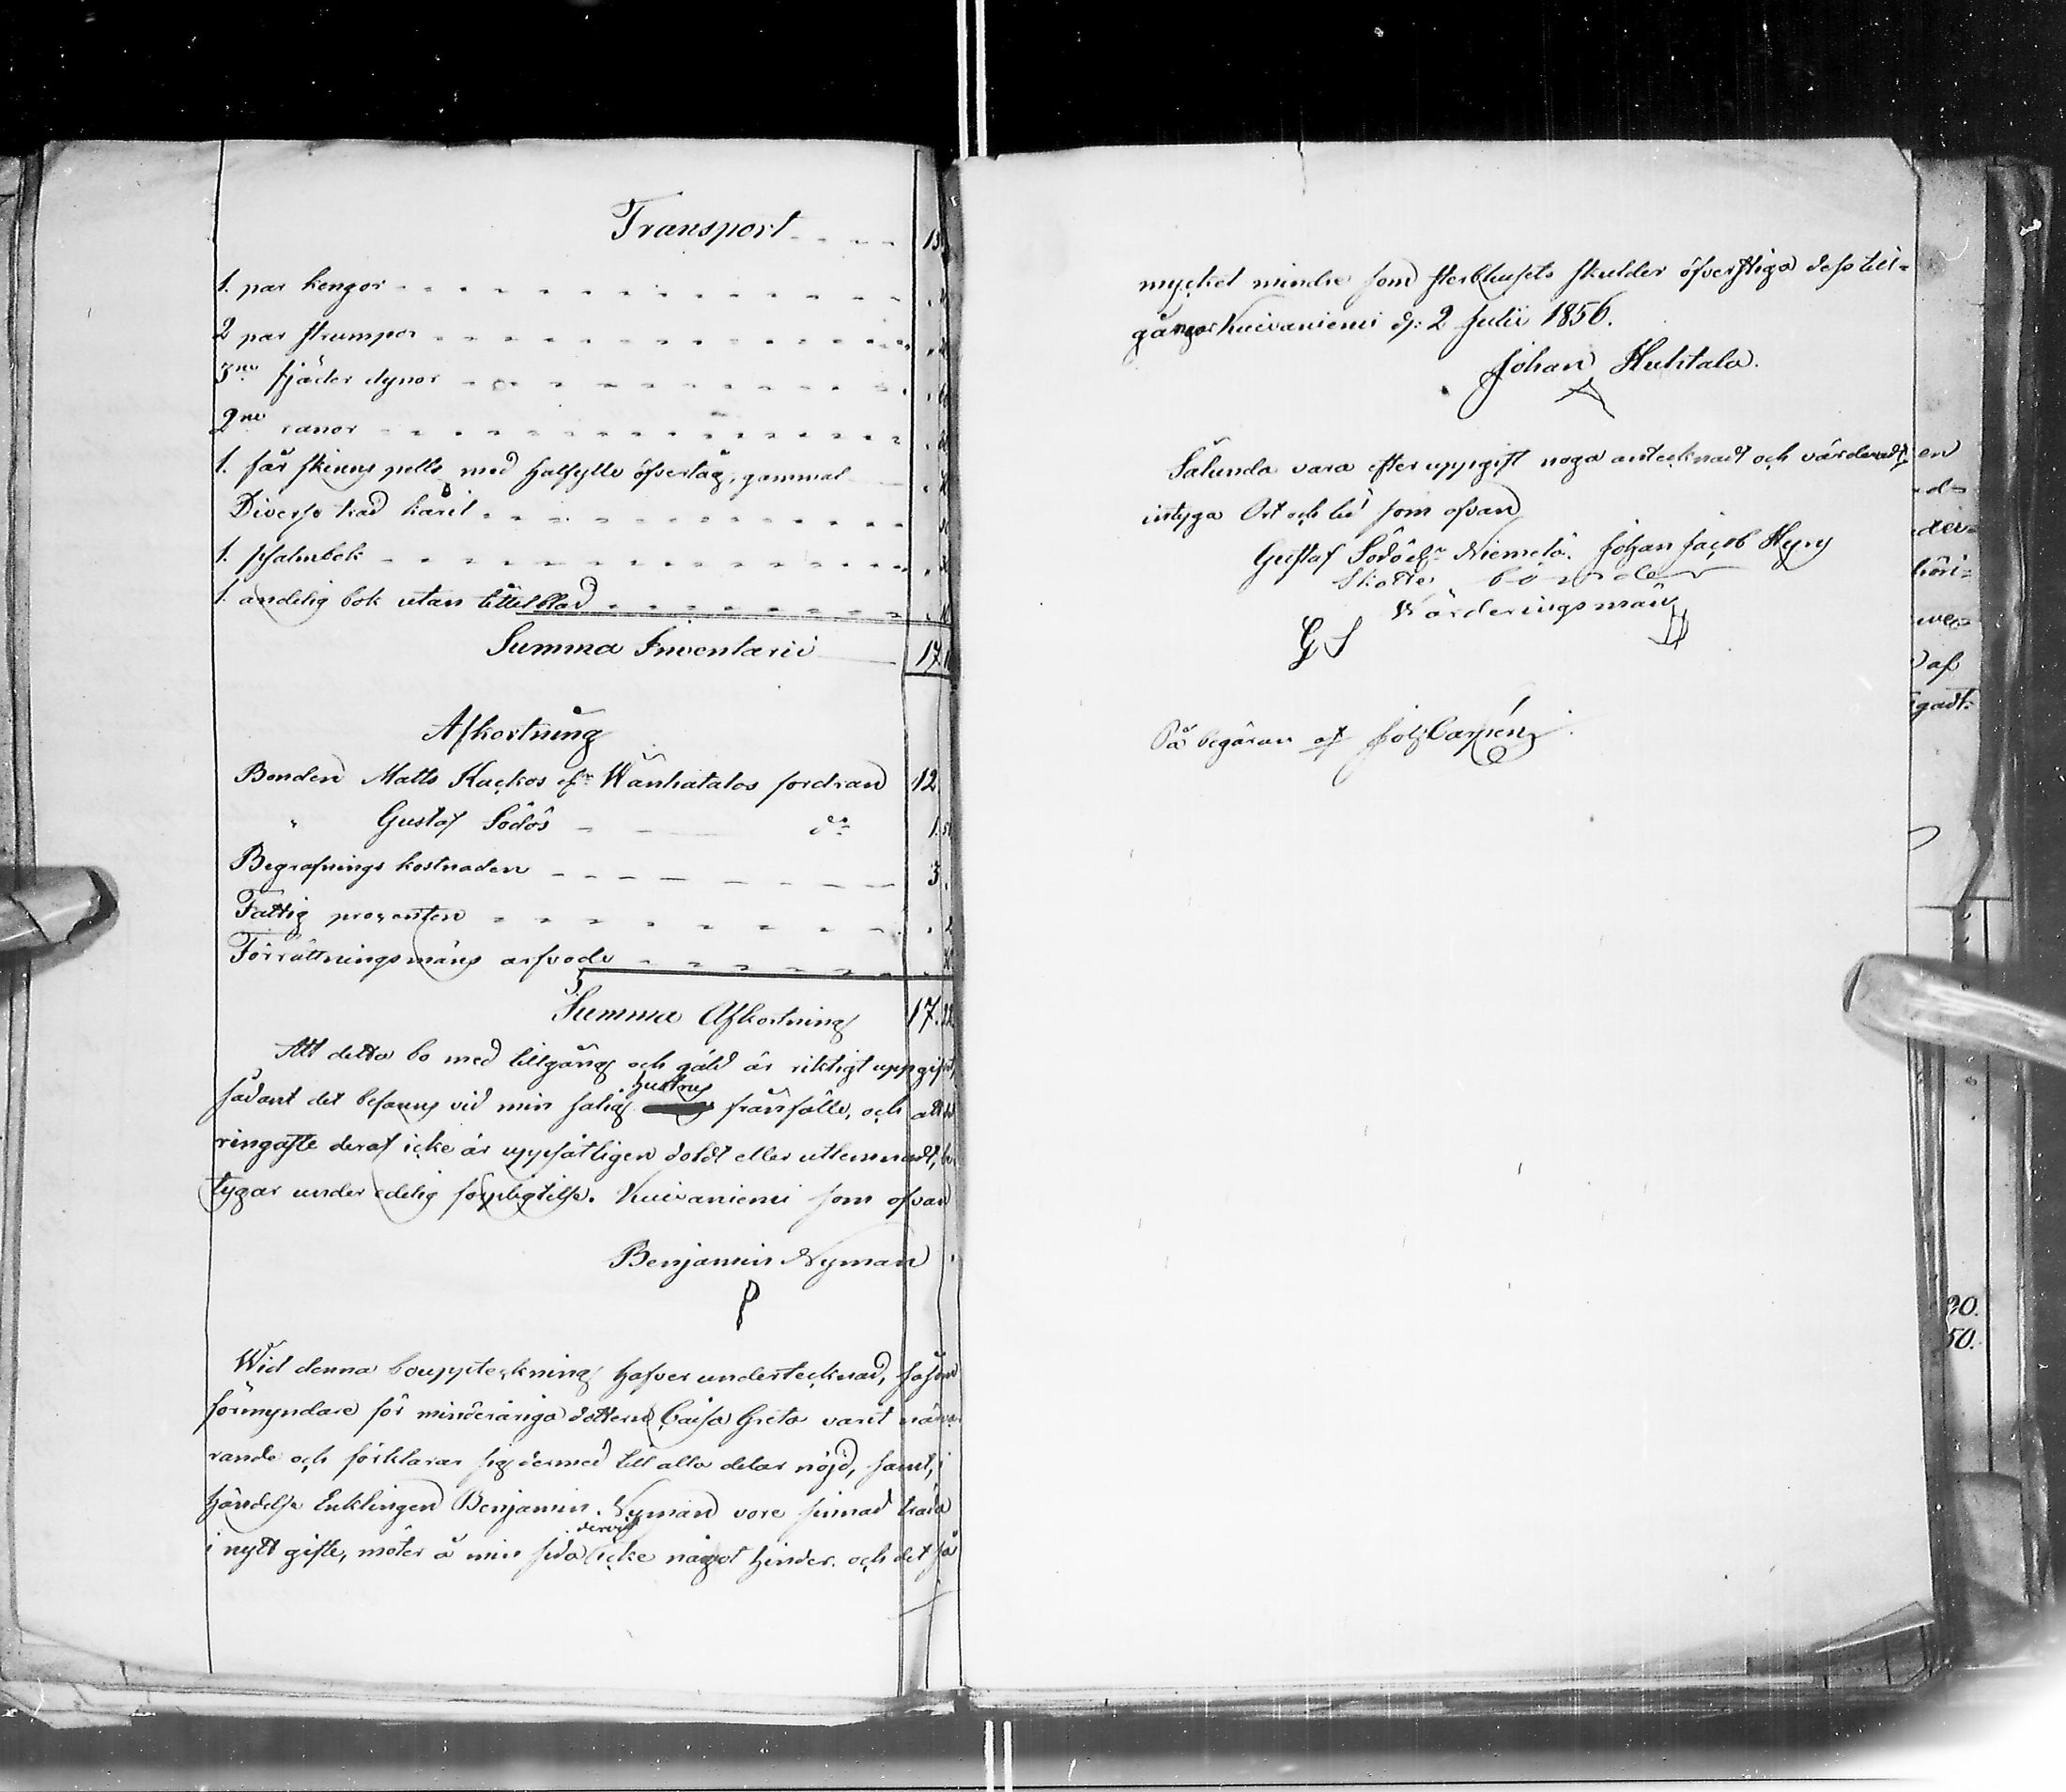 Transport 15
1. par kengor
2 par strumpor
3ne fjäder dynor
2ne ranor
1. får skinns pells med halfylle öfvertåg, gammal
Diverse träd käril
1. psalmbok
1. andelig bok utan tittelblad
Summa Inventarii 17
Afkortning
Bonden Matts Kackos eft. Wänhatalos fordran 12
" Gustaf Södös do 1.
Begrafnings kostnaden 3.
Fattig procenten
Förrättningsmäns arfvode
Summa Afkortning 17. 22.
Att detta bo med tillgång och gäld är riktigt uppgifvit,
sådant det befanns vid min salig hustrus frånfälle, och att det
ringaste deraf icke är uppsåtligen doldt eller utlemnadt, be-
tygar under edelig förpligtelse. Kuivaniemi som ofvan
Benjamin Nyman
Wid denna bouppteckning hafver undertecknad, såsom
förmyndare för minderåriga dottern Caisa Greta varit närva-
rande och förklarar sig dermed till alla delar nöjd, samt, i
händelse Enklingen Benjamin Nyman vore sinnad träda
i nytt gifte, möter å min sida deruti icke något hinder. och det så
mycket mindre som sterbhusets skulder öfverstiga dess till-
gångar Kuivaniemi d: 2 Julii 1856.
Johan Huhtala.
Sålunda vara efter uppgift noga antecknadt och värderadt,
intyga Ort och tid som ofvan
Gustaf Södö eft. Niemelä. Johan Jacob Hyry
bönder
Wärderingsmän
G S
På begäran af Joh Carpén
en
d-
der-
höri-
we-
af
gadt.
20.
50.